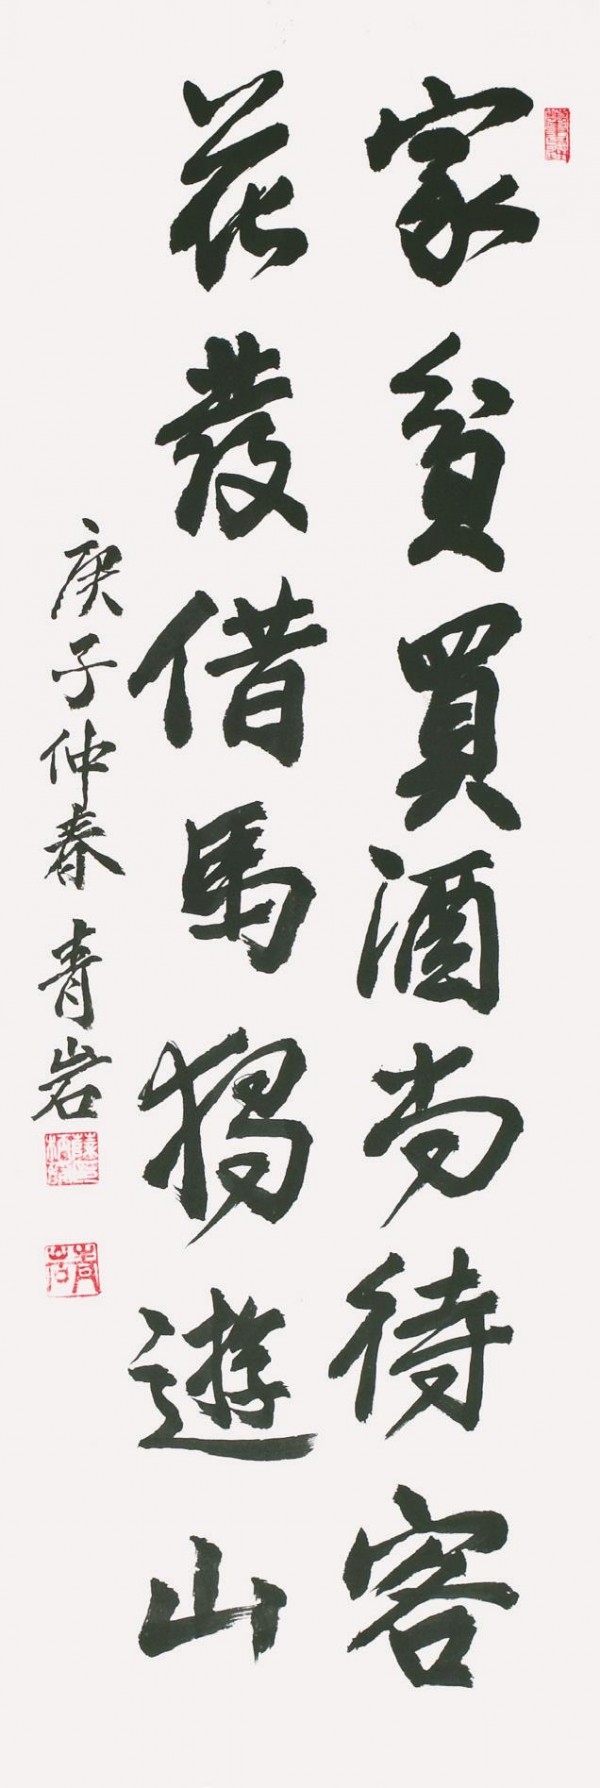 家貧買酒尚待客
花發借馬獨遊山
庚子仲春 青岩